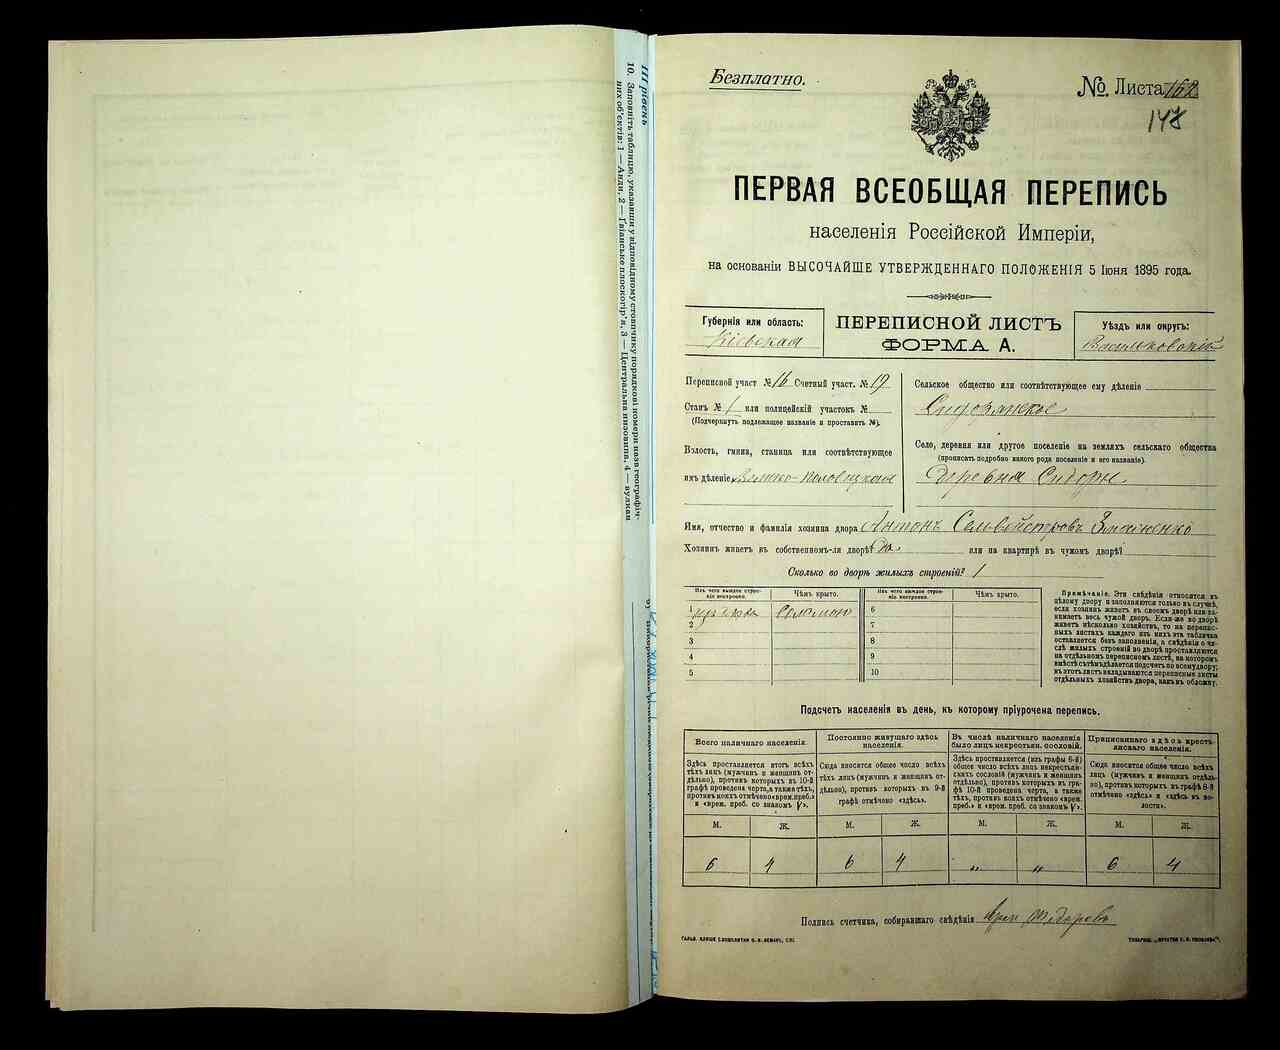 III рівень
10. Заповніть таблицю, указавши у відповідному стовпчику порядкові номери назв географіч-
них об'єктів: 1 — Анди, 2 — Гвіанське плоскогір'я, 3 — Центральна низовина, 4 — вулкан
Безплатно.
№ Листа 152
148
ПЕРВАЯ ВСЕОБЩАЯ ПЕРЕПИСЬ
населенія Россійской Имперіи,
на основаніи ВЫСОЧАЙШЕ УТВЕРЖДЕННАГО ПОЛОЖЕНІЯ 5 Іюня 1895 года.
Губернія или область:
Кіевская
ПЕРЕПИСНОЙ ЛИСТЪ
ФОРМА А.
Уѣздъ или округъ:
Васильковскій
Переписной участ № 16 Счетный участ. № 19
Станъ № 1 или полицейскій участокъ №
(Подчеркнуть подлежащее названіе и проставить №).
Волость, гмина, станица или соотвѣтствующее
имъ дѣленіе Велико-Половецкое
Сельское общество или соотвѣтствующее ему дѣленіе
Сидорянское
Село, деревня или другое поселеніе на земляхъ сельскаго общества
(прописать подробно какого рода поселеніе и его названіе).
Деревня Сидоры
Имя, отчество и фамилія хозяина двора Антонъ Сельвестровъ
Хозяинъ живетъ въ собственномъ-ли дворѣ? Да. или на квартирѣ въ чужомъ дворѣ?
Сколько во дворѣ жилыхъ строеній? 1
Изъ чего каждое строе-
ніе построено.
Чѣмъ крыто.
Изъ чего каждое строе-
ніе построено.
Чѣмъ крыто.
1 Соломою 6
2 7
3 8
4 9
5 10
Примѣчаніе. Эти свѣдѣнія относятся къ
цѣлому двору и заполняются только въ случаѣ,
если хозяинъ живетъ въ своемъ дворѣ или за-
нимаетъ весь чужой дворъ. Если-же во дворѣ
живетъ нѣсколько хозяйствъ, то на перепис-
ныхъ листахъ каждаго изъ нихъ эта табличка
оставляется безъ заполненія, а свѣдѣнія о чи-
слѣ жилыхъ строеній во дворѣ проставляются
на отдѣльномъ переписномъ листѣ, на которомъ
вмѣстѣ съ тѣмъ дѣлается подсчетъ по всему двору;
въ этотъ листъ вкладываются переписные листы
отдѣльныхъ хозяйствъ двора, какъ въ обложку.
Подсчетъ населенія въ день, къ которому пріурочена перепись.
Всего наличнаго населенія.
Постоянно живущаго здѣсь
населенія.
Въ числѣ наличнаго населенія
было лицъ некрестьян. сословій.
Приписаннаго здѣсь кресть-
янскаго населенія.
Здѣсь проставляется итогъ всѣхъ
тѣхъ лицъ (мужчинъ и женщинъ от-
дѣльно), противъ которыхъ въ 10-й
графѣ проведена черта, а также тѣхъ,
противъ коихъ отмѣчено «врем. преб.»
и «врем. преб. со знакомъ V».
Сюда вносится общее число всѣхъ
тѣхъ лицъ (мужчинъ и женщинъ от-
дѣльно), противъ которыхъ въ 9-й
графѣ отмѣчено «здѣсь».
Здѣсь проставляется (изъ графы 6-й)
общее число всѣхъ лицъ некрестьян-
скихъ сословій (мужчинъ и женщинъ
отдѣльно), противъ которыхъ въ
графѣ 10-й проведена черта, а также
тѣхъ, противъ коихъ отмѣчено «врем.
преб.» и «врем. преб. со знакомъ V».
Сюда вносится общее число всѣхъ
лицъ (мужчинъ и женщинъ отдѣль-
но), противъ которыхъ въ графѣ 8-й
отмѣчено «здѣсь» и «здѣсь въ во-
лости».
М. Ж. М. Ж. М. Ж. М. Ж.
6 4 6 4 „ „ 6 4
Подпись счетчика, собиравшаго свѣдѣнія Федоровъ